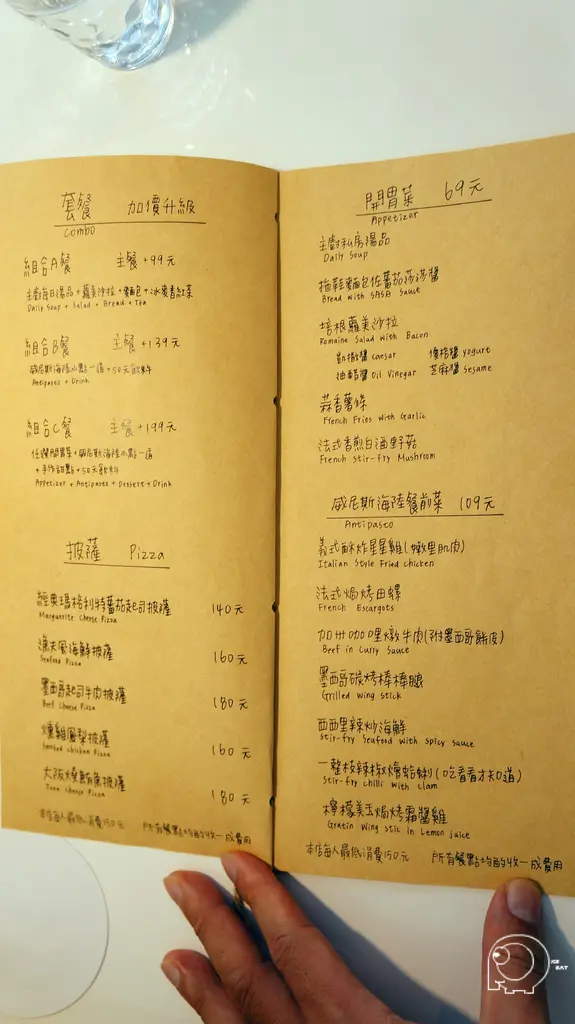 套餐 加價升級
Combo
組合A餐 主餐+99元
主廚每日湯品+蘿美沙拉+麵包+冰麥香紅茶
Daily Soup + Salad + Bread + Tea
組合B餐 主餐+139元
威尼斯海陸小點一道+50元飲料
Antipasto + Drink
組合C餐 主餐+199元
任選開胃菜+威尼斯海陸小點一道
+手作甜點+50元飲料
Appetizer + Antipasto + Dessert + Drink
披薩 Pizza
經典瑪格利特蕃茄起司披薩 140元
Marguerite Cheese Pizza
漁夫風海鮮披薩 160元
Seafood Pizza
墨西哥起司牛肉披薩 180元
Beef Cheese Pizza
燻雞鳳梨披薩 160元
Smoked Chicken Pizza
大阪燒鮪魚披薩 180元
Tuna Cheese Pizza
本店每人最低消費150元 所有餐點均酌收一成費用
開胃菜 69元
Appetizer
主廚私房湯品
Daily Soup
拖鞋麵包佐蕃茄莎莎醬
Bread with SASA Sauce
培根蘿美沙拉
Romaine Salad with Bacon
凱撒醬 Caesar 優格醬 Yogurt
油醋醬 Oil Vinegar 芝麻醬 Sesame
蒜香薯條
French Fries with Garlic
法式香煎白酒野菇
French Stir-fry Mushroom
威尼斯海陸餐前菜 109元
Antipasto
義式酥炸星星雞(嫩里肌肉)
Italian Style Fried Chicken
法式焗烤田螺
French Escargots
加州咖哩燉牛肉(附墨西哥餅皮)
Beef in Curry Sauce
墨西哥碳烤棒棒腿
Grilled Wing Stick
西西里辣炒海鮮
Stir-fry Seafood with Spicy Sauce
一整枝辣椒燴蛤蜊(吃看看才知道)
Stir-fry Chilli with Clam
檸檬美玉焗烤霜醬雞
Gratin Wing Stic in Lemon juice
本店每人最低消費150元 所有餐點均酌收一成費用
ICE
EAT